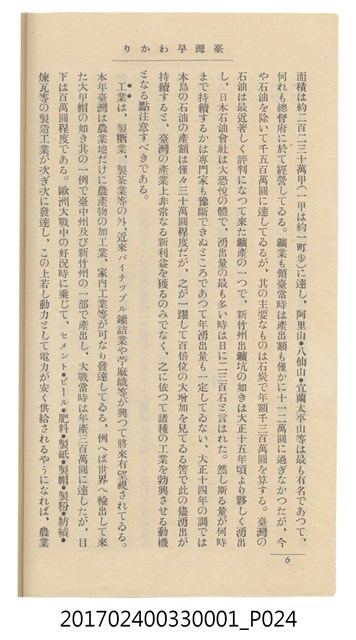 臺灣早わかり
面積は約二百二三十萬甲(一甲は約一町步)に達し、阿里山・八仙山・宜蘭太平山等は最も有名であつて、
何れも總督府に於て經營してゐる。鑛業も領臺當時は產出額も僅かに十一二萬圓に過ぎなかつたが、今
や石油を除いて千五百萬圓に達してゐるが、其の主要なものは石炭で年額千三百萬圓を算する。臺灣の
石油は最近著しく評判になつて來た鑛產の一つで、新竹州出鑛坑の如きは大正十五年頃より夥しく湧出
し、日本石油會社は大恐悅の體で、湧出量の最も多い時は日に二三百石と言はれた。然し斯る量が何時
まで持續するかは專門家も豫斷できぬところであつて年湧出量も一定してゐない、大正十四年の調では
本島の石油の產額は僅々三十萬圓程度だが、之が一躍して百倍位の大增加を見てゐる筈で此の儘湧出が
持續すると、臺灣の產業上非常なる新利益を獲るのみでなく、之に依つて諸種の工業を勃興させる動機
となる點注意すべきである。
工業は、製糖業、製茶業等の外、近來パイナツプル罐詰業や苧麻織等が興つて將來有望視されてゐる。
本年臺灣は農業地だけに農產物の加工業、家內工業等が可なり發達してゐる。例へば世界へ輸出して來
た大甲帽の如き其の一例で臺中州及び新竹州の一部で產出し、大戰當時は年產三百萬圓に達したが、目
下は百萬圓程度である。歐洲大戰中の好況時に乘じて、セメント・ビール・肥料・製紙・製帽・製粉・紡績・
煉瓦等の製造工業が次ぎ次に發達し、この上若し動力として電力が安く供給されるやうになれば、農業
6
201702400330001_P024